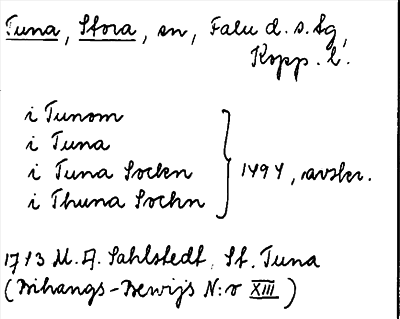 Tuna, Stora, sn, Falu d. s. tg,
Kopp. l.
i Tunom
i Tuna
i Tuna Sockn
i Thuna Sochn
1494, avskr.
1713 M. A. Sahlstedt, St. Tuna
(Bihangs-Bewijs N:o XIII)